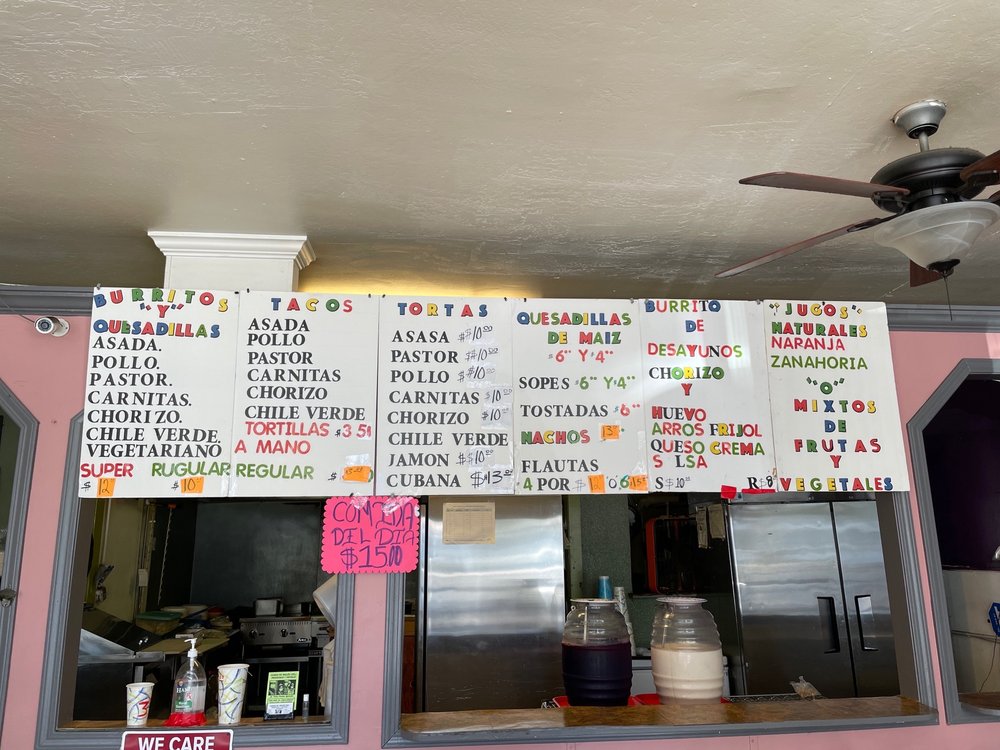 BURRITOS
"Y"
QUESADILLAS
ASADA.
POLLO.
PASTOR.
CARNITAS.
CHORIZO.
CHILE VERDE.
VEGETARIANO
SUPER RUGULAR
$12 $10
TACOS
ASADA
POLLO
PASTOR
CARNITAS
CHORIZO
CHILE VERDE
TORTILLAS $3.50
A MANO
REGULAR
TORTAS
ASASA $10.00
PASTOR $10.00
POLLO $10
CARNITAS $10
CHORIZO $10
CHILE VERDE
JAMON $10
CUBANA $13
QUESADILLAS
DE MAIZ
$6 Y $4
SOPES $6 Y 4
TOSTADAS $6
NACHOS 13
FLAUTAS
4 POR $12 O 6
BURRITO
DE
DESAYUNOS
CHORIZO
Y
HUEVO
ARROS FRIJOL
QUESO CREMA
S LSA
S $10 R $8
"JUGOS"
NATURALES
NARANJA
ZANAHORIA
"O"
MIXTOS
DE
FRUTAS
Y
VEGETALES
COMIDA
DEL DIA
$15.00
WE CARE